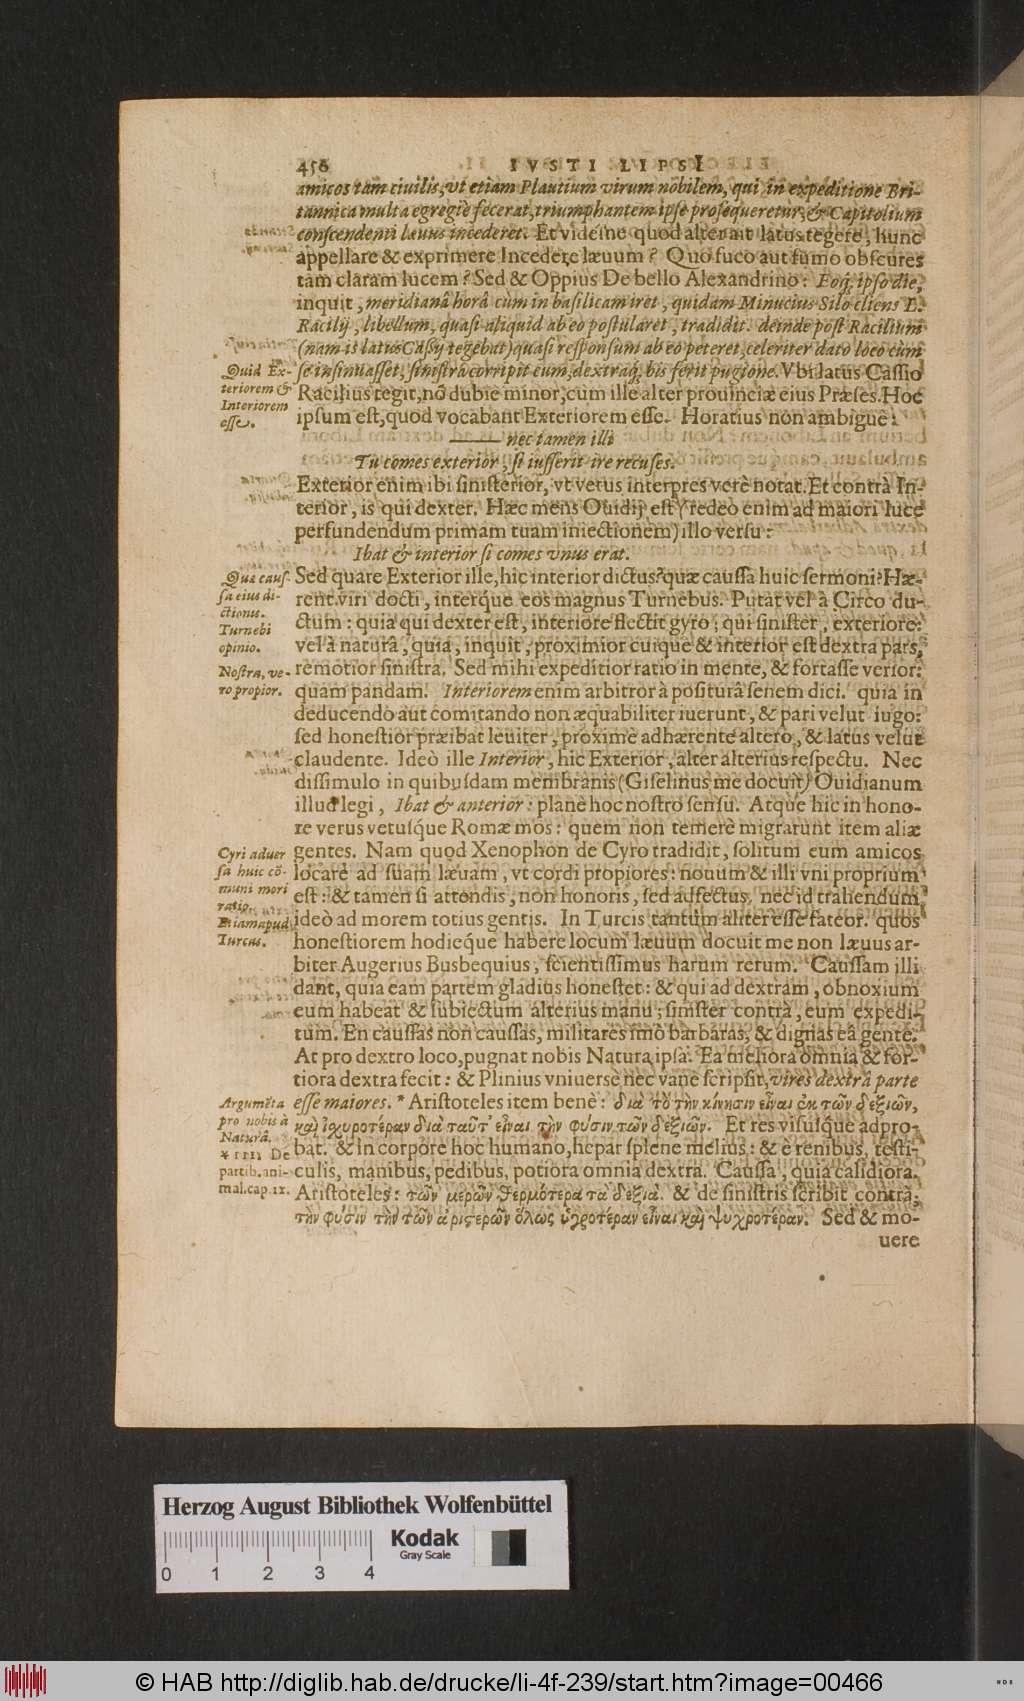 456 IVSTI LIPSI
amicos tam ciuilis, vt etiam Plautium virum nobilem, qui in expeditione Bri-
tannica multa egregiè fecerat, triumphantem ipse prosequeretur, & Capitolium
conscendenti lævus incederet. Et videsne quod alter ait latus tegere, hunc
appellare & exprimere Incedere læuum? Quo fuco aut fumo obscures
tam claram lucem? Sed & Oppius De bello Alexandrino: Eoq́; ipso die,
inquit, meridianâ horâ cùm in basilicam iret, quidam Minucius Silo cliens L.
Racilij, libellum, quasi aliquid ab eo postularet, tradidit. deinde post Racilium
(nam is latus Caßij tegebat) quasi responsum ab eo peteret, celeriter dato loco cùm
Quid Ex-
teriorem &
Interiorem
esse.
se insinuasset, sinistrâ corripit eum, dextraq́; bis ferit pugione. Vbi latus Cassio
Racilius tegit, nō dubiè minor, cum ille alter prouinciæ eius Præses. Hoc
ipsum est, quod vocabant Exteriorem esse. Horatius non ambiguè:
nec tamen illi
Tu comes exterior, si iusserit ire recuses.
Exterior enim ibi sinisterior, vt vetus interpres verè notat. Et contrà In-
terior, is qui dexter. Hæc mens Ouidij est (redeo enim ad maiori luce
perfundendum primam tuam iniectionem) illo versu:
Ibat & interior si comes vnus erat.
Quæ caus-
sa eius di-
ctionis.
Turnebi
opinio.
Nostra, ve-
ro propior.
Sed quare Exterior ille, hic interior dictus? quæ caussa huic sermoni? Hæ-
rent viri docti, interq́ue eos magnus Turnebus. Putat vel à Circo du-
ctum: quia qui dexter est, interiore flectit gyro; qui sinister, exteriore:
vel à naturâ, quia, inquit, proximior cuique & interior est dextra pars,
remotior sinistra. Sed mihi expeditior ratio in mente, & fortasse verior:
quam pandam. Interiorem enim arbitror à positurâ senem dici. quia in
deducendo aut comitando non æquabiliter iuerunt, & pari velut iugo:
sed honestior præibat leuiter, proximè adhærente altero, & latus velut
claudente. Ideò ille Interior, hic Exterior, alter alterius respectu. Nec
dissimulo in quibusdam membranis (Giselinus me docuit) Ouidianum
illud legi, Ibat & anterior: planè hoc nostro sensu. Atque hic in hono-
re verus vetusq́ue Romæ mos: quem non temerè migrarunt item aliæ
Cyri aduer
sa huic cō-
muni mori
ratio.
Etiam apud
Turcas.
gentes. Nam quod Xenophon de Cyro tradidit, solitum eum amicos
locare ad suam læuam, vt cordi propiores: nouum & illi vni proprium
est: & tamen si attendis, non honoris, sed adfectus. nec id trahendum,
ideò ad morem totius gentis. In Turcis tantùm aliter esse fateor. quos
honestiorem hodieq́ue habere locum læuum docuit me non læuus ar-
biter Augerius Busbequius, scientissimus harum rerum. Caussam illi
dant, quia eam partem gladius honestet: & qui ad dextram, obnoxium
eum habeat & subiectum alterius manu; sinister contrà, eum expedi-
tum. En caussas non caussas, militares imò barbaras, & dignas eâ gente.
At pro dextro loco, pugnat nobis Natura ipsa. Ea meliora omnia & for-
tiora dextra fecit: & Plinius vniuersè nec vanè scripsit, vires dextrâ parte
Argumēta
pro nobis à
Naturâ.
* IIII De
partib. ani-
mal. cap. II.
esse maiores. * Aristoteles item benè: διὰ τὸ τὴν κίνησιν εἶναι ἐκ τῶν δεξιῶν,
καὶ ἰσχυροτέραν διὰ ταῦτ' εἶναι τὴν φύσιν τῶν δεξιῶν. Et res visusq́ue adpro-
bat. & in corpore hoc humano, hepar splene melius: & è renibus, testi-
culis, manibus, pedibus, potiora omnia dextra. Caussa, quia calidiora.
Aristoteles: τῶν μερῶν θερμότερα τὰ δεξιά. & de sinistris scribit contrà;
τὴν φύσιν τὴν τῶν ἀριστερῶν ὅλως ὑγροτέραν εἶναι καὶ ψυχροτέραν. Sed & mo-
uere
Herzog August Bibliothek Wolfenbüttel
Kodak
Gray Scale
0 1 2 3 4
© HAB http://diglib.hab.de/drucke/li-4f-239/start.htm?image=00466